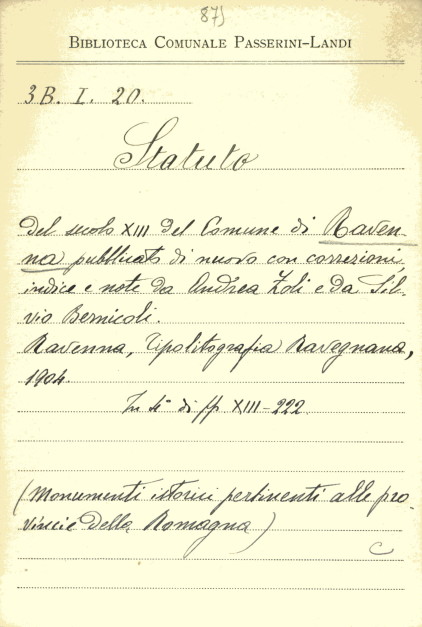 87)
BIBLIOTECA COMUNALE PASSERINI-LANDI
3B. I. 20.
Statuto
del secolo XIII del Comune di Raven-
na pubblicato di nuovo con correzioni,
indice e note da Andrea Zoli e da Sil-
vio Bernicoli.
Ravenna, Tipolitografia Ravegnana,
1904.
In 4° di pp XIII-222
(Monumenti istorici pertinenti alle pro-
vincie della Romagna)
C